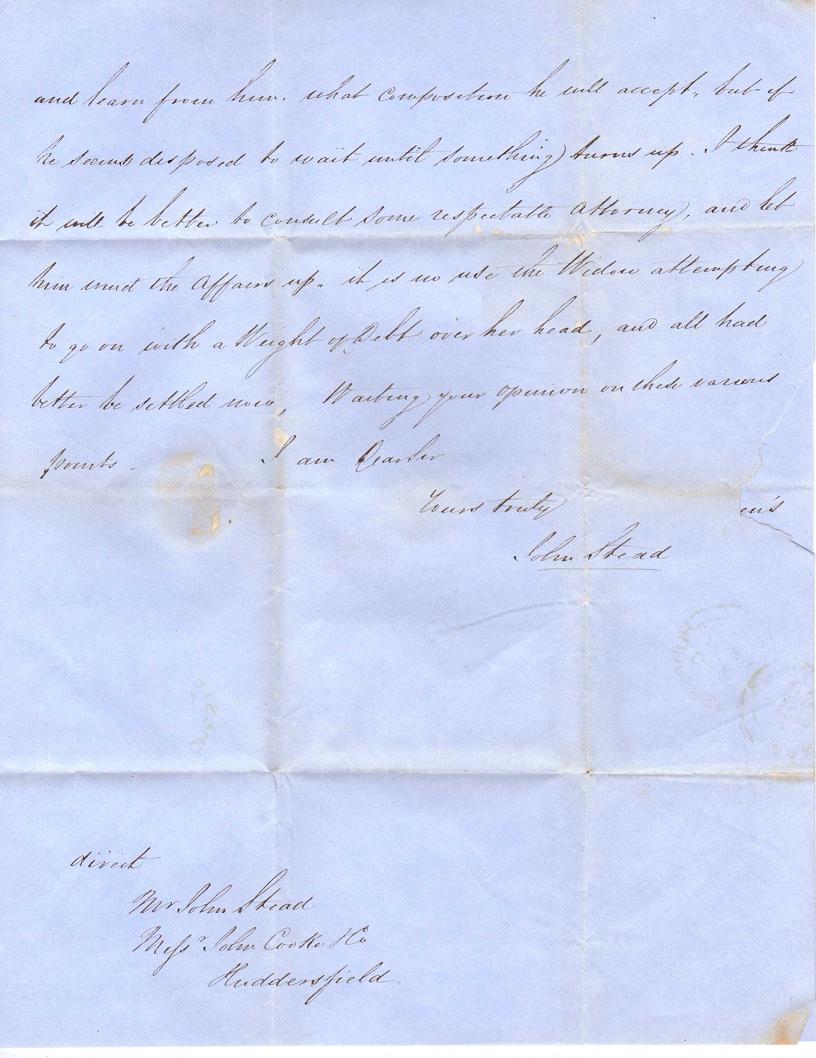 and learn from him. what composition he will accept, but if
he seems disposed to wait until something turns up. I think
it will be better to consult some respectable Attorney, and let
him wind the Affairs up. it is no use the Widow attempting
to go on with a Weight of Debt over her head, and all had
better be settled now, Waiting your opinion on these various
points. I am Dear Sir
Yours truly
en's
John Stead
direct
Mr John Stead
Messrs John Cooke & Co
Huddersfield